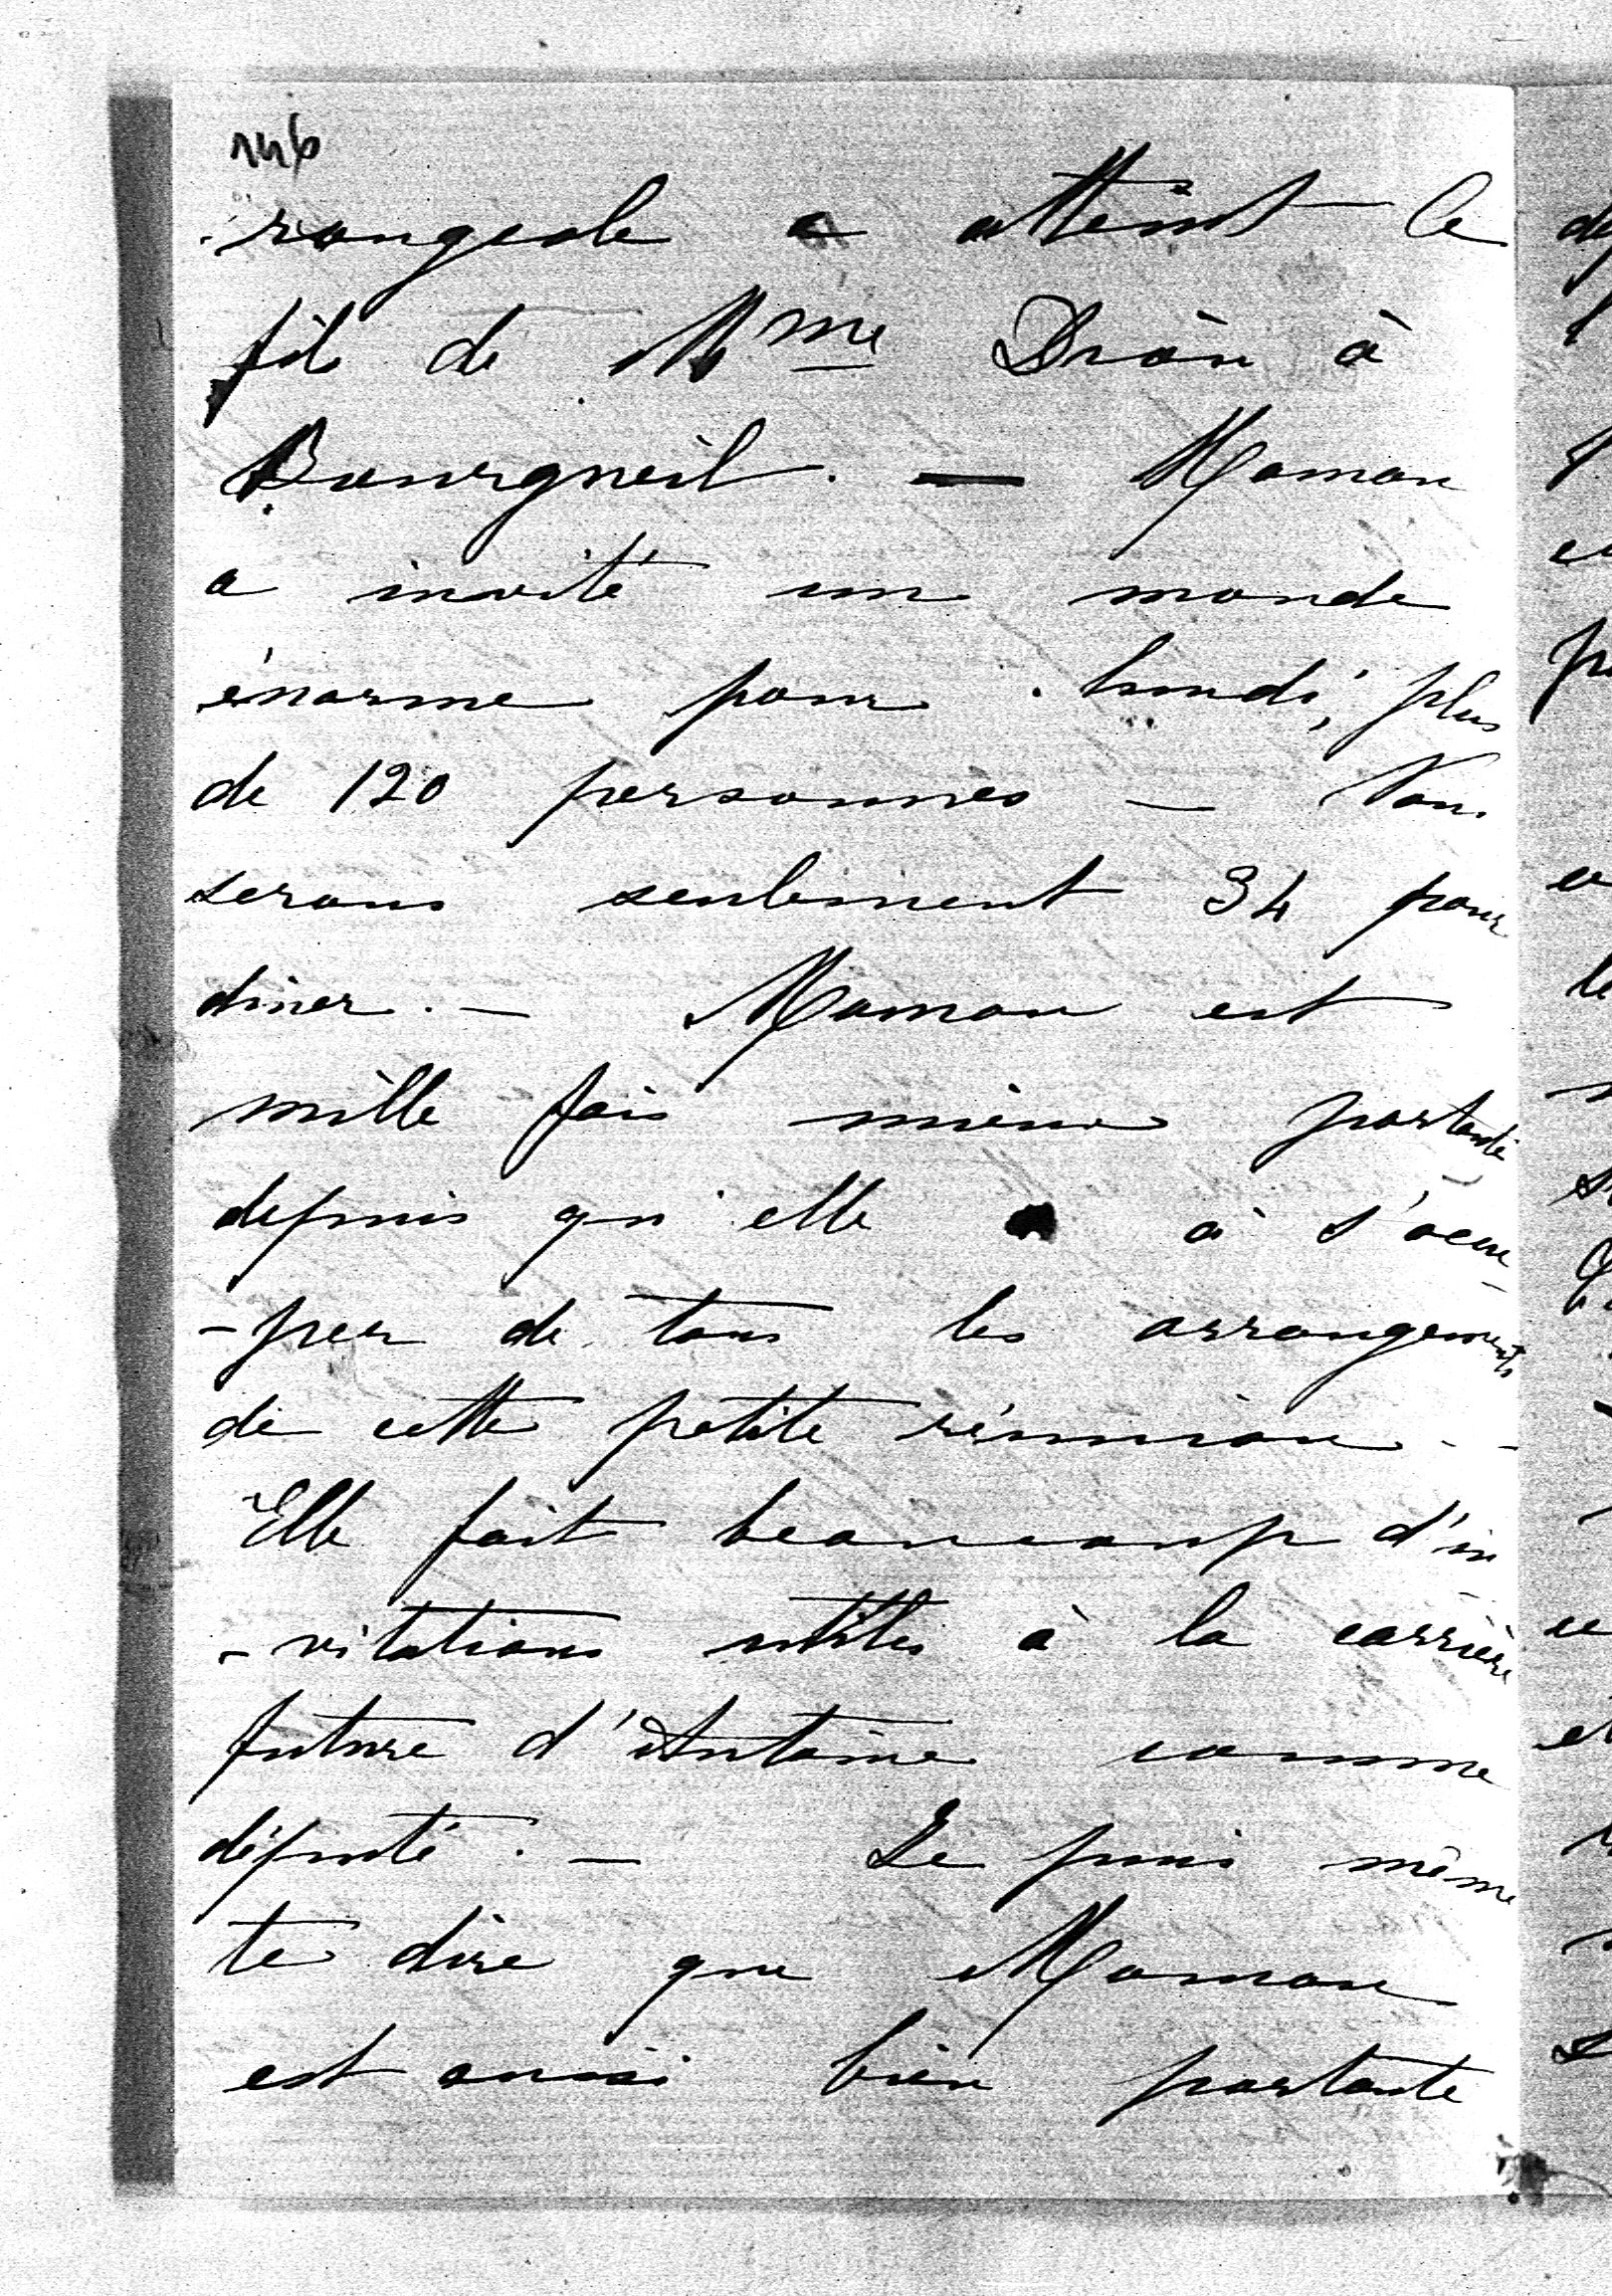 146
rougeole a atteint le
fils de Mme Dron à
Bourgneil. — Maman
a invité un monde
énorme pour lundi, plus
de 120 personnes — Nous
serons seulement 34 pour
diner. — Maman est
mille fois mieux portante
depuis qu'elle a à s'occu
-per de tous les arrangements
de cette petite réunion. -
Elle fait beaucoup d'in
-vitations utiles à la carrière
future d'Antoine comme
député. — Je puis même
te dire que Maman
est aussi bien portante